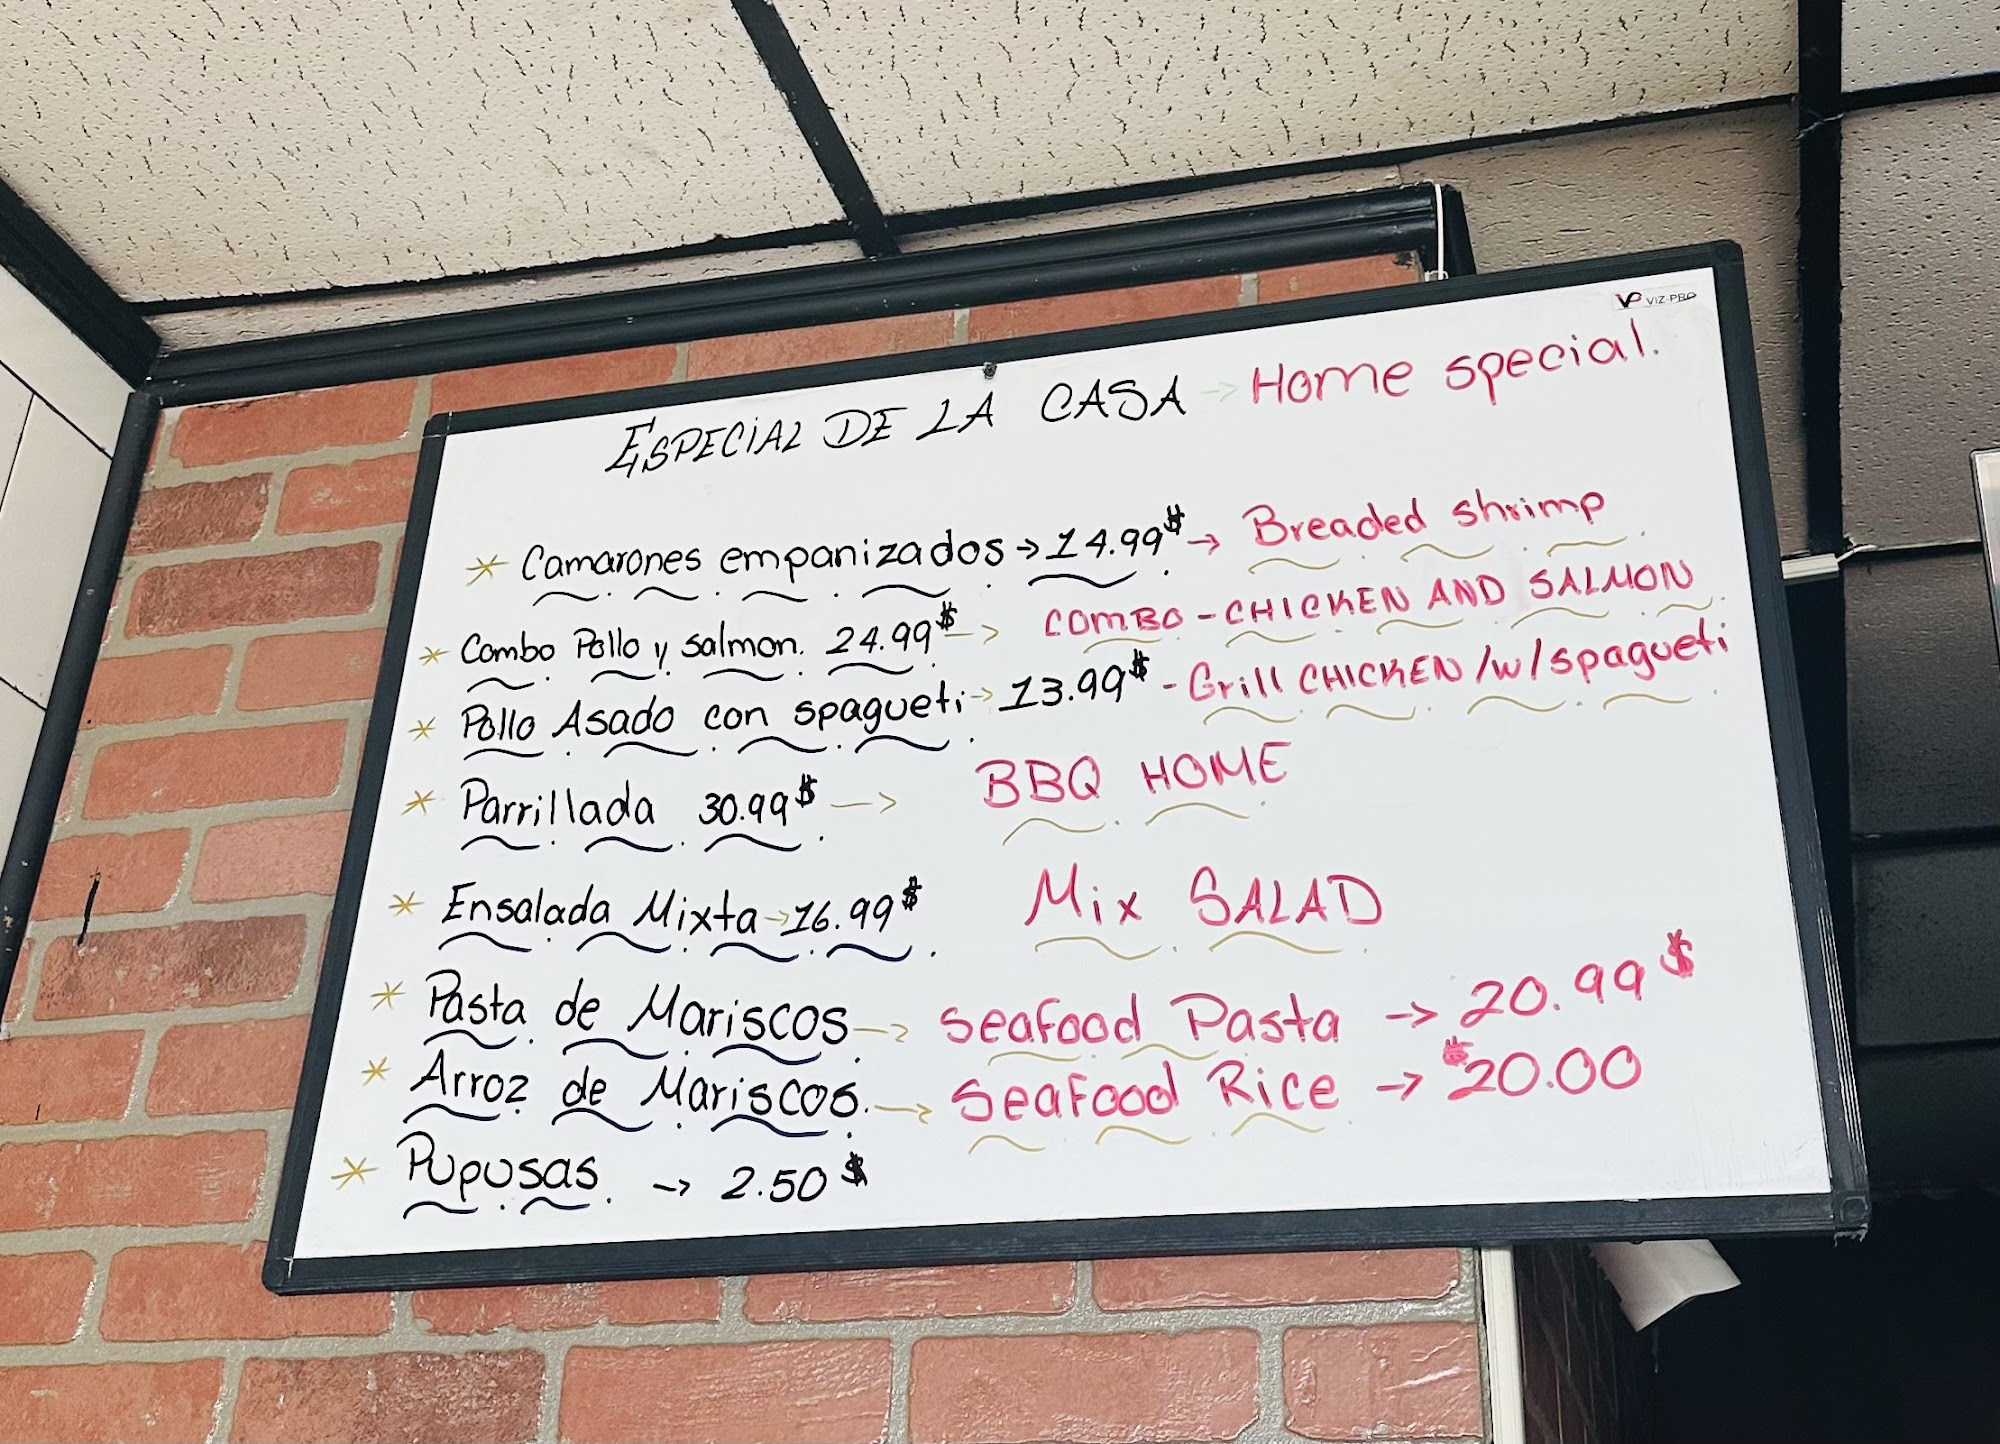 VP VIZ-PRO
ESPECIAL DE LA CASA → Home special.
* Camarones empanizados → 14.99$ → Breaded shrimp
* Combo Pollo y salmon. 24.99$ → COMBO - CHICKEN AND SALMON
* Pollo Asado con spagueti → 13.99$ - Grill CHICKEN /w/spagueti
* Parrillada 30.99$ → BBQ HOME
* Ensalada Mixta → 16.99$ Mix SALAD
* Pasta de Mariscos → seafood Pasta → 20.99$
* Arroz de Mariscos. → seafood Rice → $20.00
* Pupusas. → 2.50$